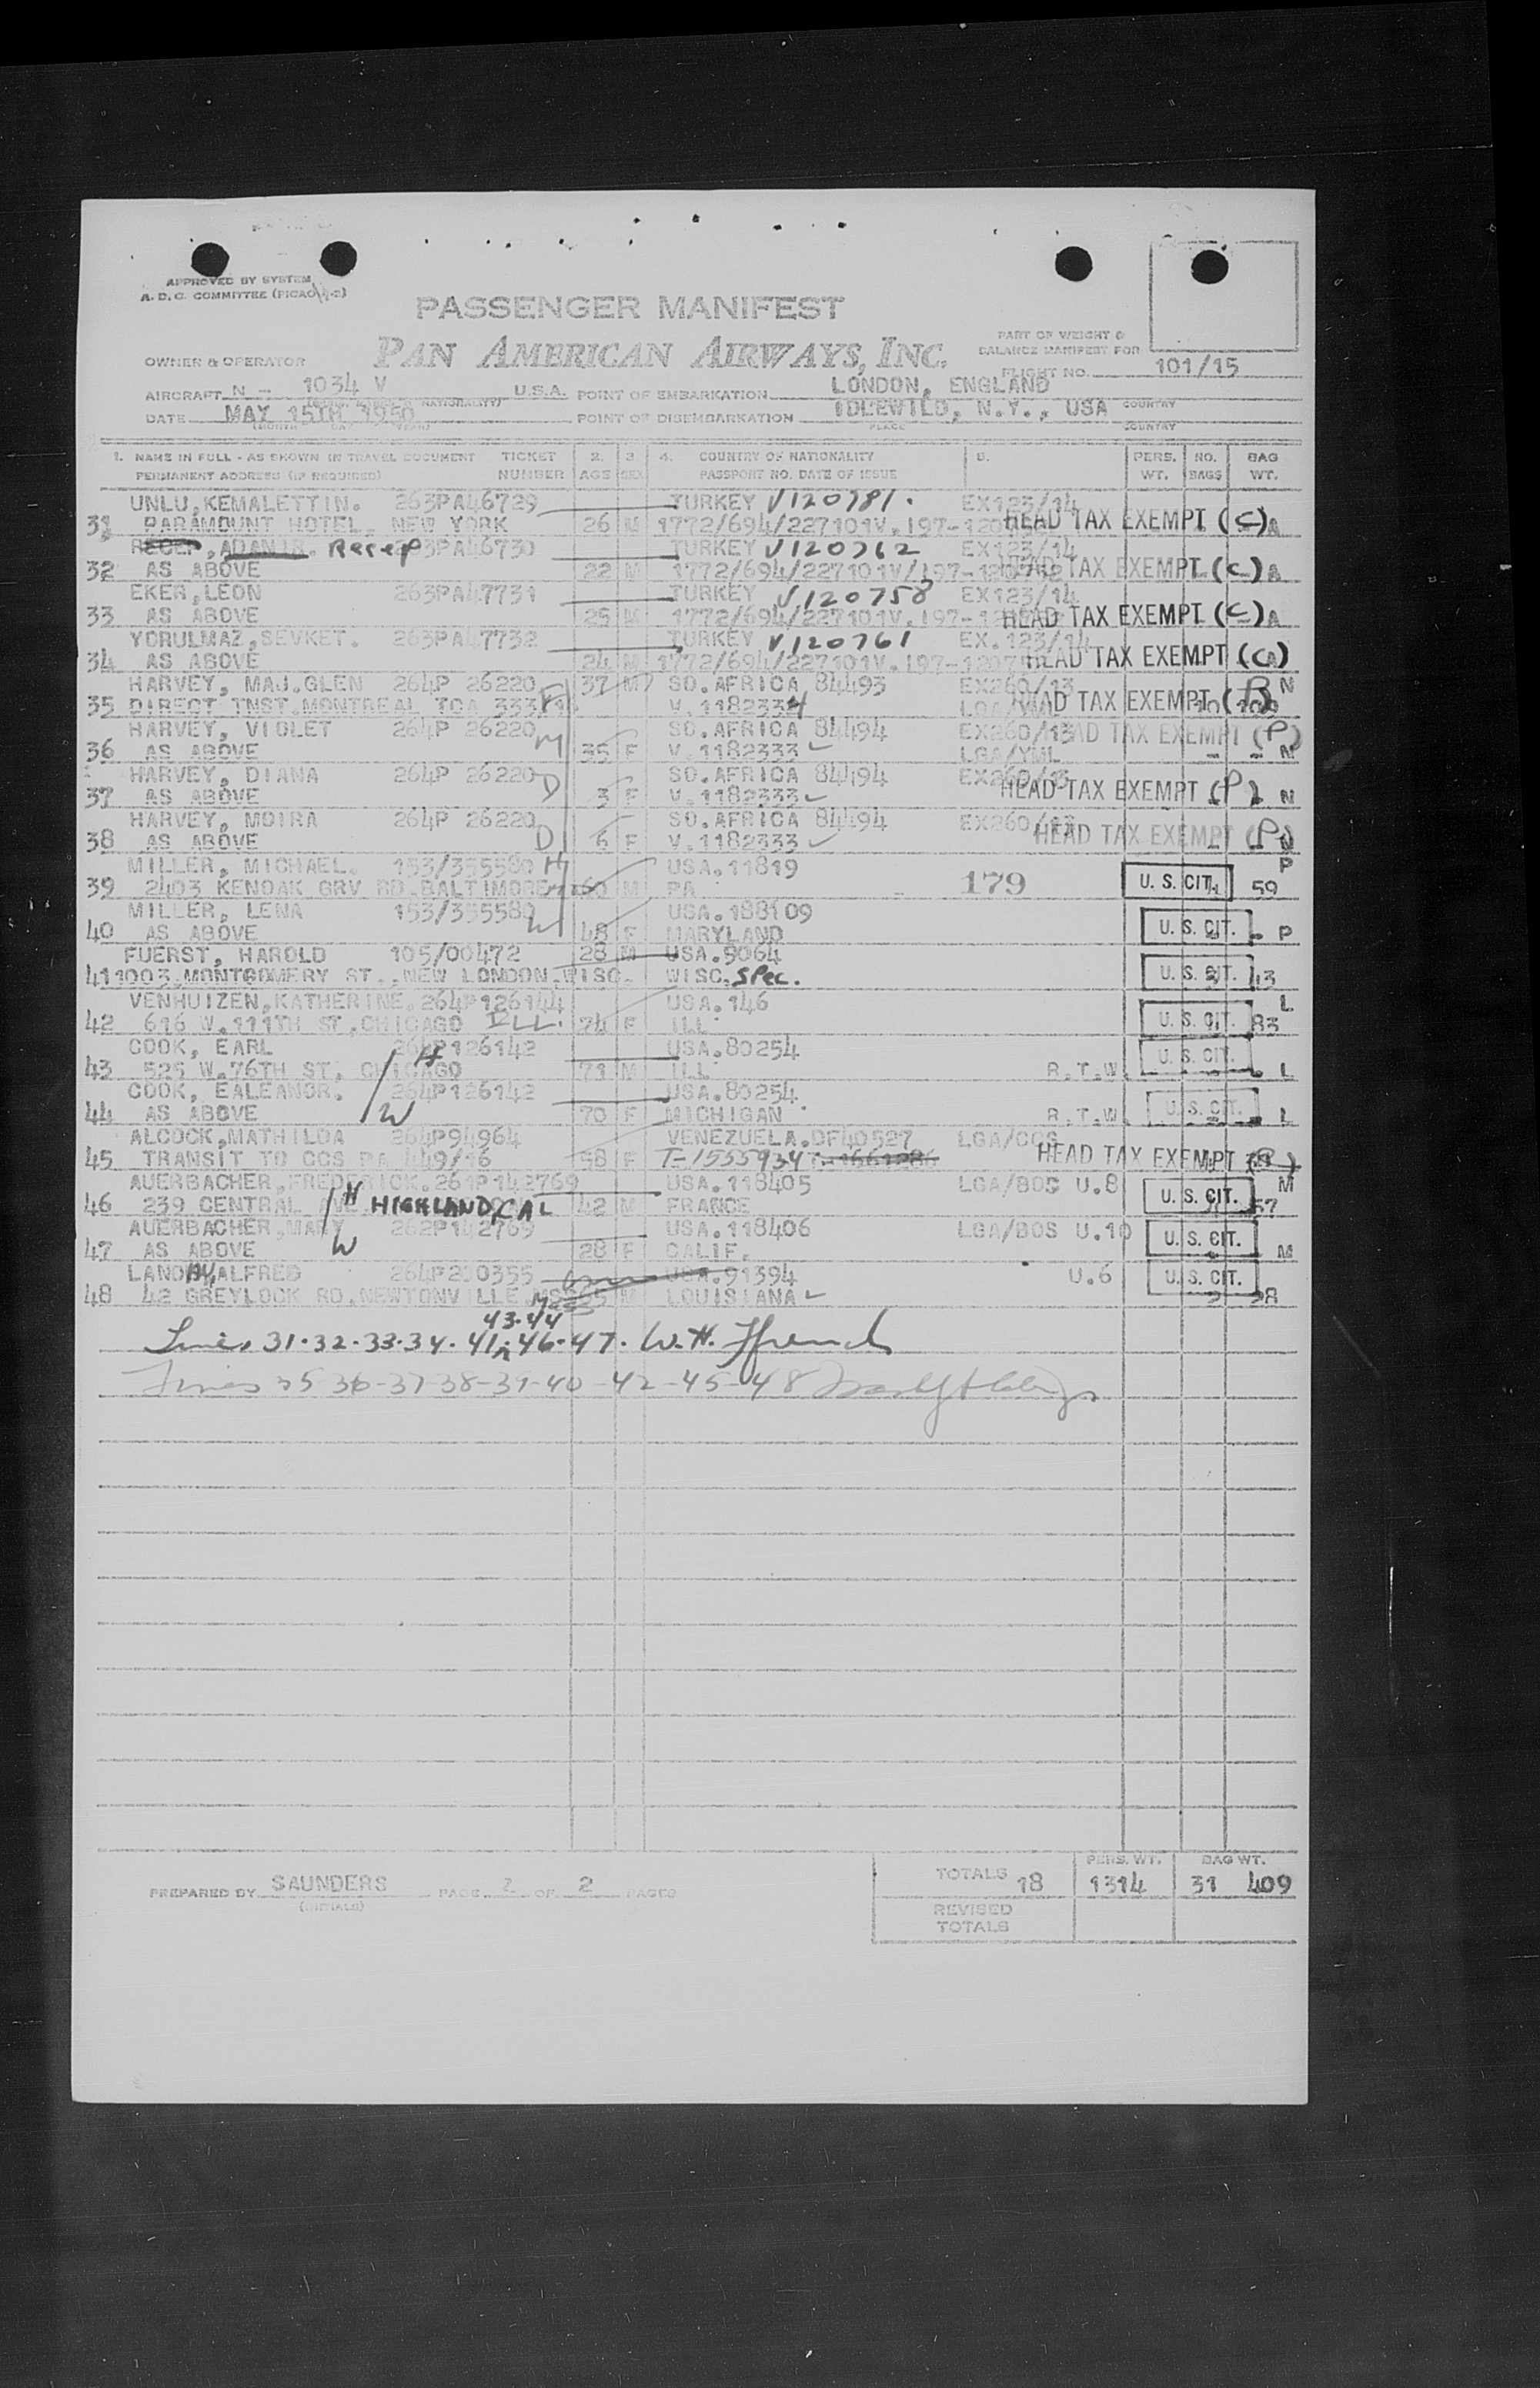 APPROVED BY SYSTEM
A. D. C. COMMITTEE (PICAO
PASSENGER MANIFEST
PART OF WEIGHT &
BALANCE MANIFEST FOR
OWNER & OPERATOR PAN AMERICAN AIRWAYS, INC. FLIGHT NO. 101/15
AIRCRAFT N - 1034 V U.S.A. POINT OF EMBARKATION LONDON, ENGLAND
DATE MAY 15TH, 1950 POINT OF DISEMBARKATION IDLEWILD, N.Y., USA COUNTRY
PLACE COUNTRY
1. NAME IN FULL - AS SHOWN IN TRAVEL DOCUMENT TICKET 2. 3 4. COUNTRY OF NATIONALITY 5. PERS. NO. BAG
PERMANENT ADDRESS (IF REQUIRED) NUMBER AGE SEX PASSPORT NO. DATE OF ISSUE WT. BAGS WT.
UNLU,KEMALETTIN. 263PA46729 TURKEY V120781. EX123/14
31 PARAMOUNT HOTEL NEW YORK 26 M 1772/694/227101V.197- HEAD TAX EXEMPT (C) A
RECEP,ADANIR. Recep 263PA46730 TURKEY V120762 EX123/14
32 AS ABOVE 22 M 1772/694/227101V/197-120762 TAX EXEMPT (C) A
EKER,LEON 263PA47731 TURKEY V120758 EX123/14
33 AS ABOVE 25 M 1772/694/227101V.197- HEAD TAX EXEMPT (C) A
YORULMAZ,SEVKET. 263PA47732 TURKEY V120761 EX.123/14
34 AS ABOVE 24 M 1772/694/227101V.197- HEAD TAX EXEMPT (C) A
HARVEY, MAJ.GLEN 264P 26220 37 M SO.AFRICA 84493 EX260/13 N
35 DIRECT TNST.MONTREAL TCA F V.1182334 HEAD TAX EXEMPT (P)
HARVEY, VIOLET 264P 26220 SO.AFRICA 84494 EX260/13 HEAD TAX EXEMPT (P)
36 AS ABOVE M 35 F V.1182333 LGA/YML - - N
HARVEY, DIANA 264P 26220 SO.AFRICA 84494 EX260/13
37 AS ABOVE D 3 F V.1182333 HEAD TAX EXEMPT (P) N
HARVEY, MOIRA 264P 26220 SO.AFRICA 84494 EX260/13
38 AS ABOVE D 6 F V.1182333 HEAD TAX EXEMPT (P) N
MILLER, MICHAEL. 153/355580 H USA.11819 P
39 2403 KENOAK GRV RD.BALTIMORE 60 M PA 179 U. S. CIT. 59
MILLER, LENA 153/355580 USA.188109
40 AS ABOVE W 48 F MARYLAND U. S. CIT. - P
FUERST, HAROLD 105/00472 28 M USA.9064
41 1003.MONTGOMERY ST.,NEW LONDON.WISC. WISC. Spec. U. S. CIT. 13
VENHUIZEN,KATHERINE.264P126144 USA.146 L
42 616 W.111TH ST,CHICAGO ILL. 74 F ILL U. S. CIT. 83
COOK, EARL 264P126142 USA.80254
43 525 W.76TH ST, CHICAGO H 71 M ILL R.T.W. U. S. CIT. - L
COOK, EALEANOR. 264P126142 USA.80254
44 AS ABOVE W 70 F MICHIGAN R.T.W. U. S. CIT. - L
ALCOCK,MATHILDA 264P94964 VENEZUELA.DF40527 LGA/CCS
45 TRANSIT TO CCS PA 449/16 58 F T-1555934 HEAD TAX EXEMPT
AUERBACHER,FREDERICK.261P142769 USA.118405 LGA/BOS U.8 M
46 239 CENTRAL AVE H HIGHLAND, CAL 42 M FRANCE U. S. CIT. 57
AUERBACHER,MARY 262P142769 USA.118406 LGA/BOS U.10
47 AS ABOVE W 28 F CALIF. U. S. CIT. M
LANDAY,ALFRED USA.91394 U.6
48 42 GREYLOCK RD.NEWTONVILLE Mass M LOUISIANA U. S. CIT.
43-44
Lines 31-32-33-34-41-46-47. W.H.
Lines 35 36-37-38-39-40-42-45-48
PREPARED BY SAUNDERS PAGE 2 OF 2 PAGES
(INITIALS)
PERS. WT. BAG WT.
TOTALS 18 1314 31 409
REVISED
TOTALS